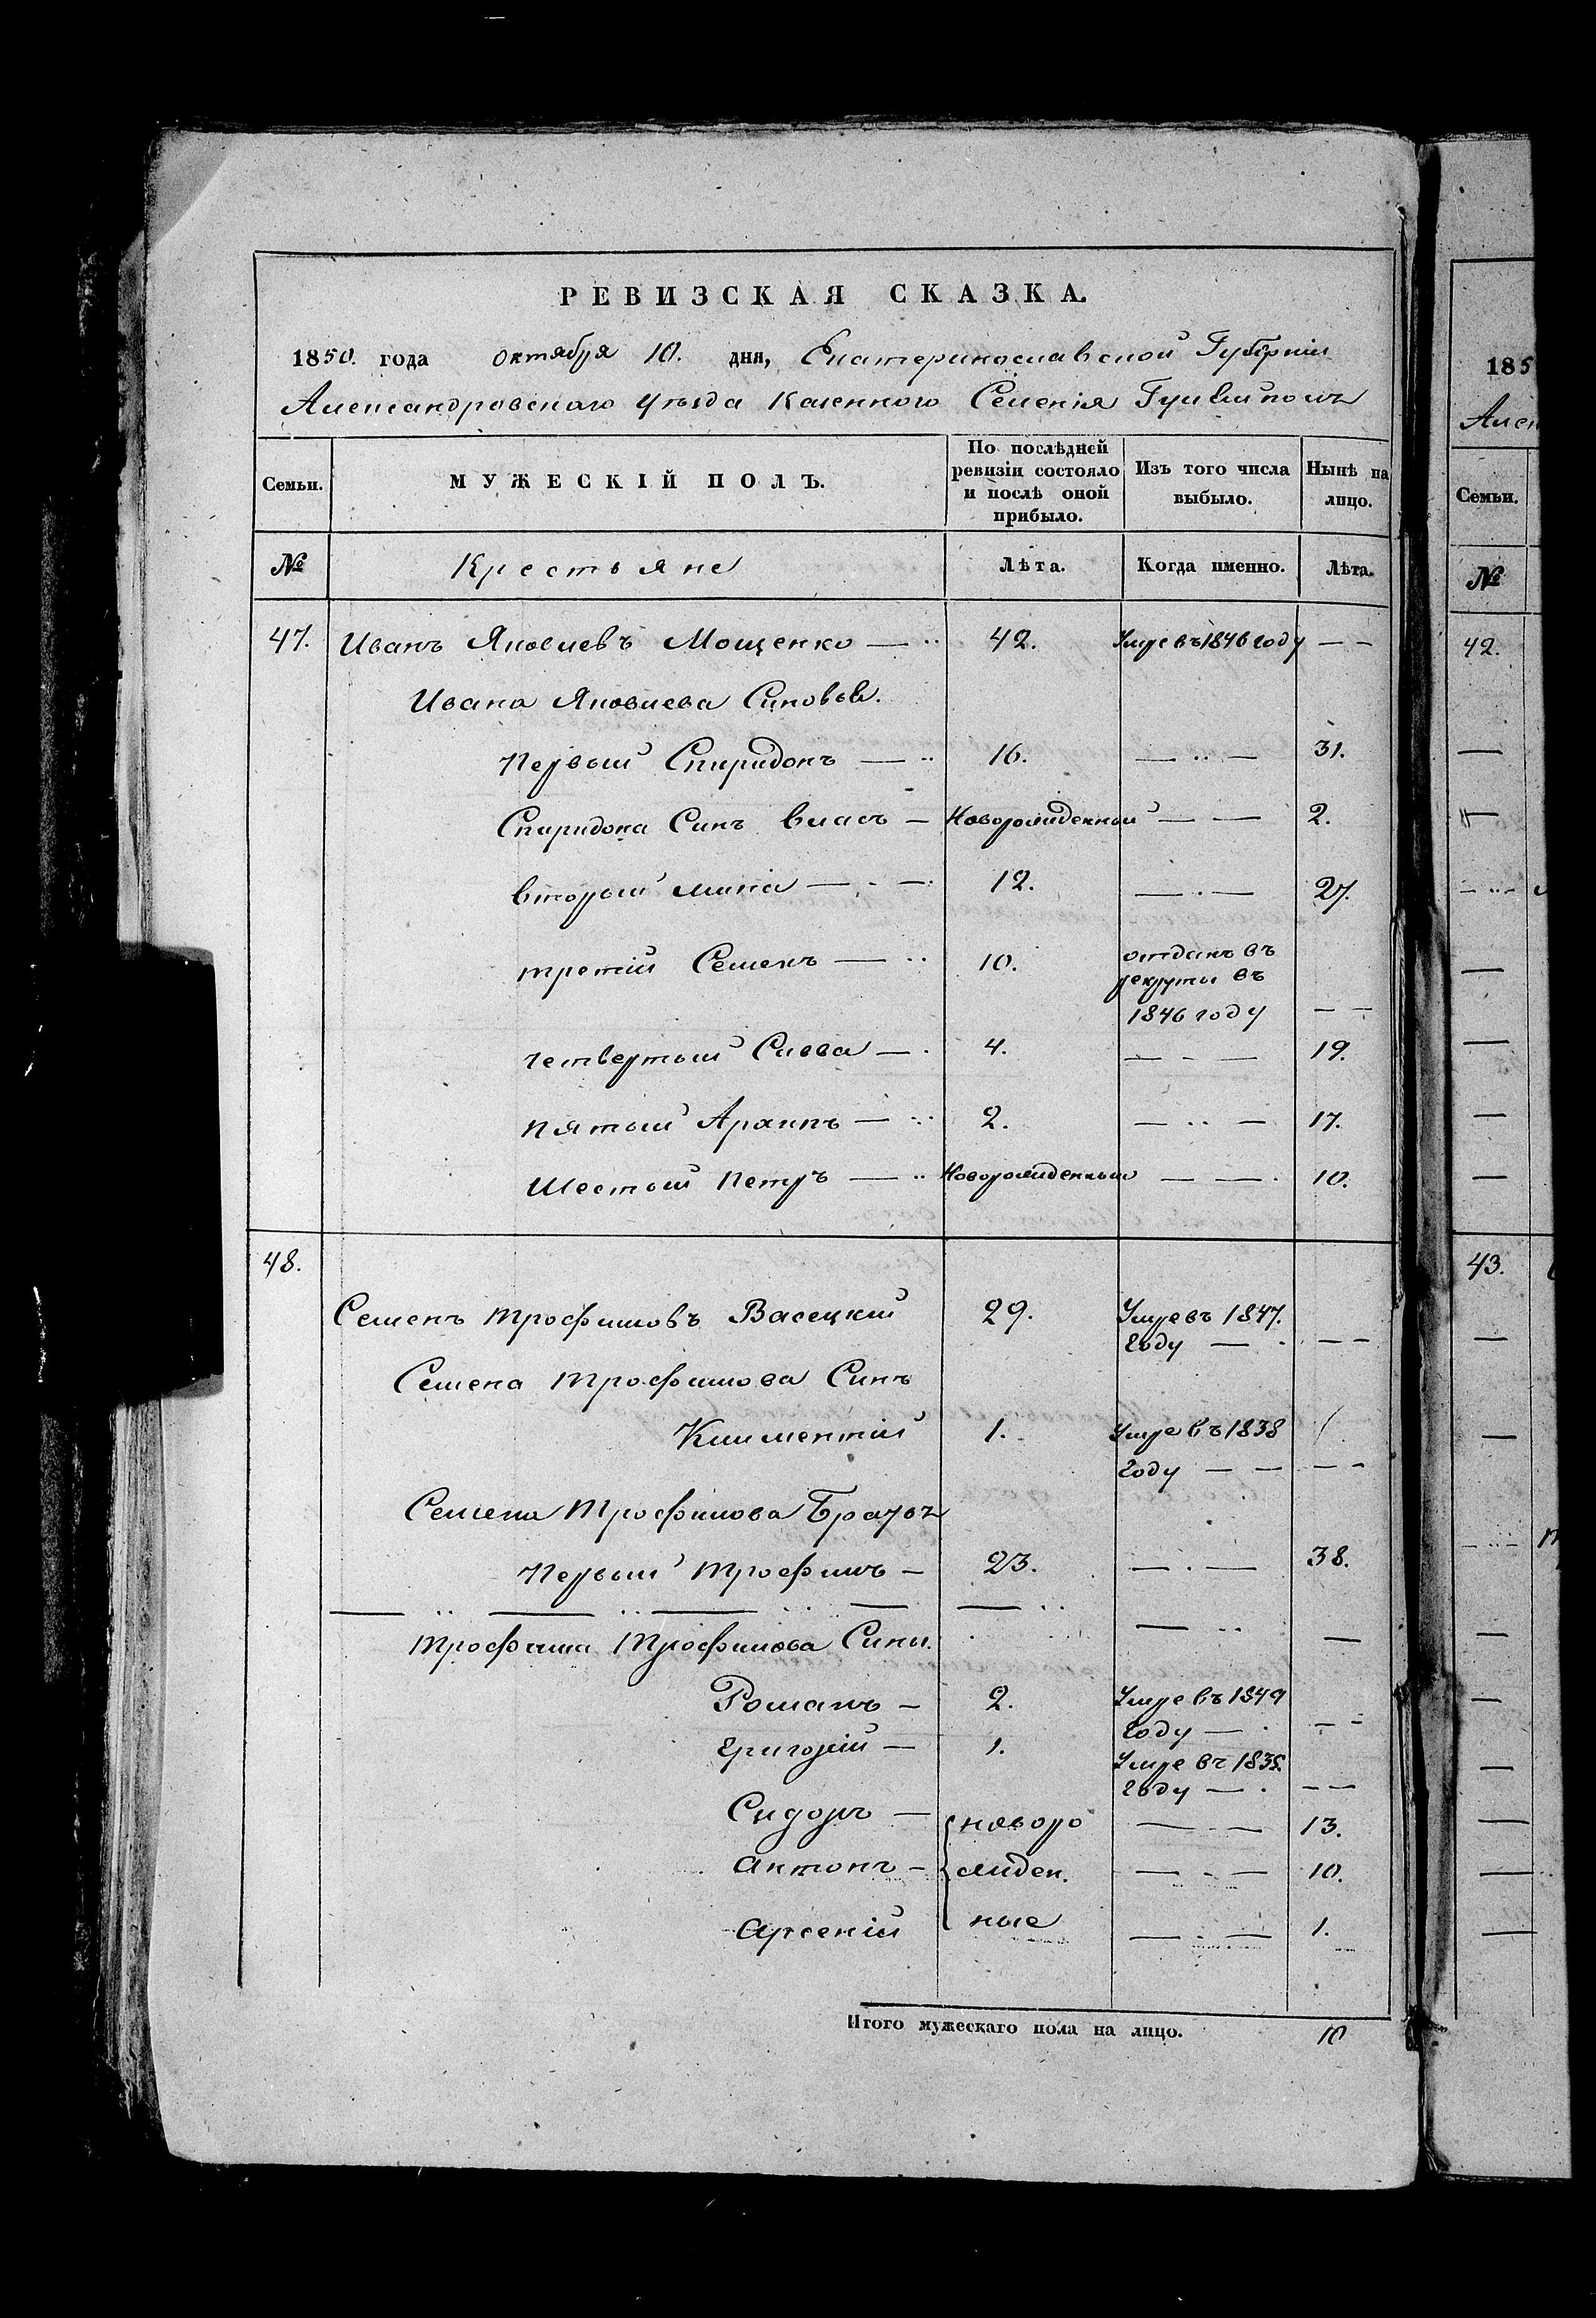 РЕВИЗСКАЯ СКАЗКА.
1850. года октября 10. дня, Екатеринославской Губернии
Александровского уезда казенного Селенія Гуляйполъ
Семьи.
МУЖЕСКІЙ ПОЛЪ.
По послѣдней ревизіи состояло и послѣ оной прибыло.
Изъ того числа выбыло.
Нынѣ на лицо.
№ Крестьяне Лѣта. Когда именно. Лѣта.
47. Иванъ Яковлевъ Мощенко 42. Умре въ 1846 году
Ивана Яковлева Синовья.
Первый Спиридонъ 16. 31.
Спиридона Синъ Власъ Новорожденный 2.
вторый Мина 12. 27.
третій Семенъ 10. отданъ въ
рекруты въ
1846 году
четвертый Савва 4. 19.
пятый Архипъ 2. 17.
Шестый Петръ Новорожденный 10.
48.
Семенъ Трофимовъ Васецкій 29. Умре въ 1847.
году
Семена Трофимова Синъ
Климентій 1. Умре въ 1838
году
Семена Трофимова Братья
Первый Трофимъ 23. 38.
Трофима Трофимова Сини.
Романъ 2. Умре въ 1849
году
Григорій 1. Умре въ 1835.
году
Сидоръ новоро 13.
Антонъ жден. 10.
Арсеній ные 1.
Итого мужескаго пола на лицо. 10
185
Алек
Семьи.
№
42.
43.